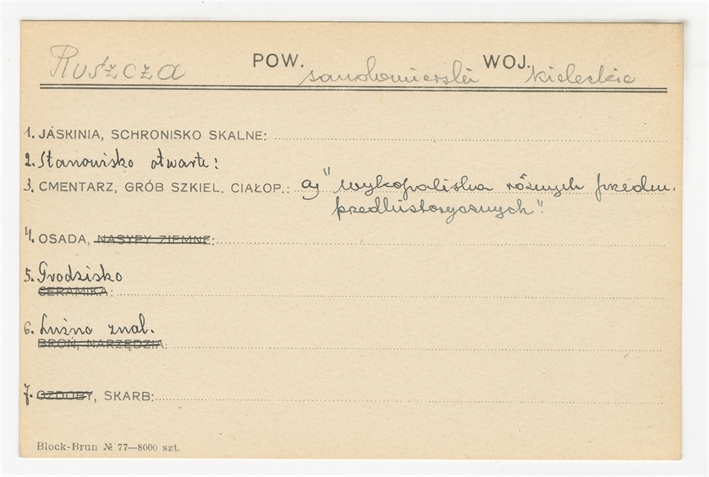 Ruszcza POW. sandomierski WOJ. kieleckie
1. JASKINIA, SCHRONISKO SKALNE:
2. Stanowisko otwarte:
3. CMENTARZ, GRÓB SZKIEL. CIAŁOP.: a) "wykopaliska różnych przedm.
przedhistorycznych".
4. OSADA, NASYPY ZIEMNE:
5. Grodzisko
CERAMIKA:
6. Luźno znal.
BROŃ, NARZĘDZIA:
7. OZDOBY, SKARB:
Block-Brun № 77—8000 szt.